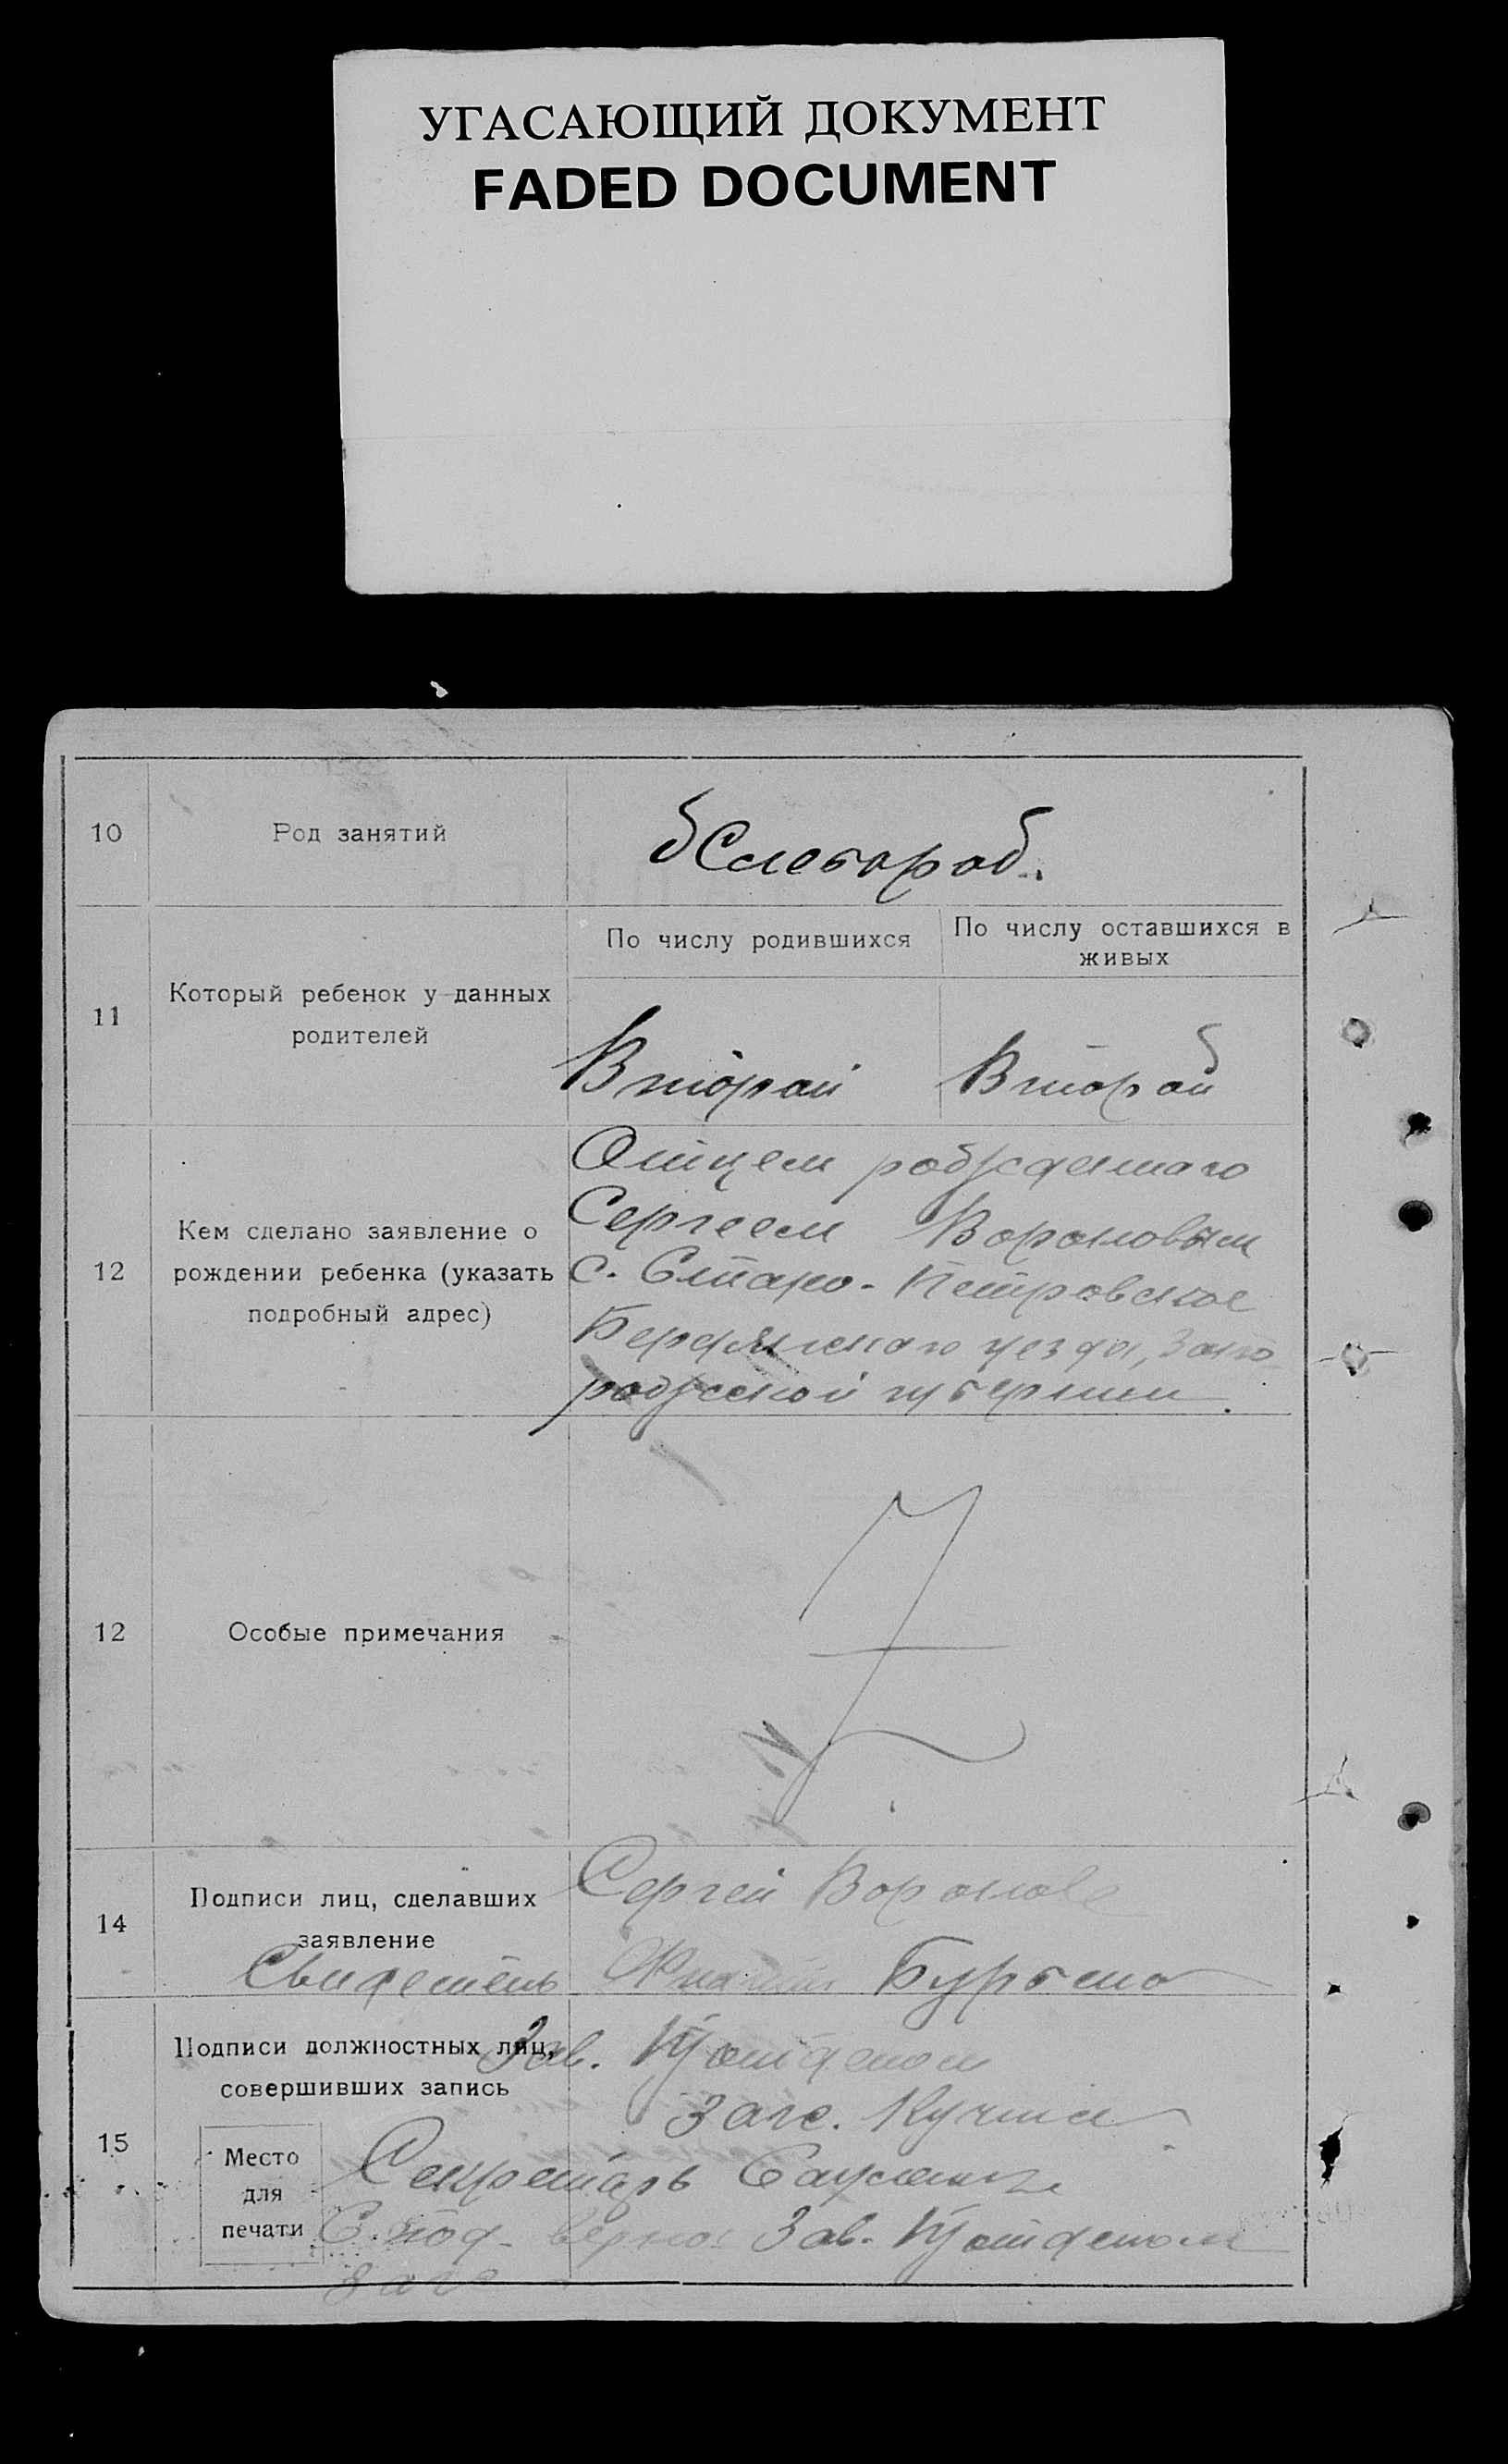 УГАСАЮЩИЙ ДОКУМЕНТ
FADED DOCUMENT
10
Род занятий
Хлебороб.
11
Который ребенок у данных
родителей
По числу родившихся
По числу оставшихся в
живых
Второй
Второй
12
Кем сделано заявление о
рождении ребенка (указать
подробный адрес)
Отцем рожденного
Сергеем Вороновым
с. Старо-Петровское
Бердянского уезда, Запо
рожской губернии.
12
Особые примечания
14
Подписи лиц, сделавших
заявление
Сергей Воронов
Свидетель
15
Подписи должностных лиц,
совершивших запись
Место
для
печати
Зав.
Загс.
Секретарь
С под. верно: Зав.
загс